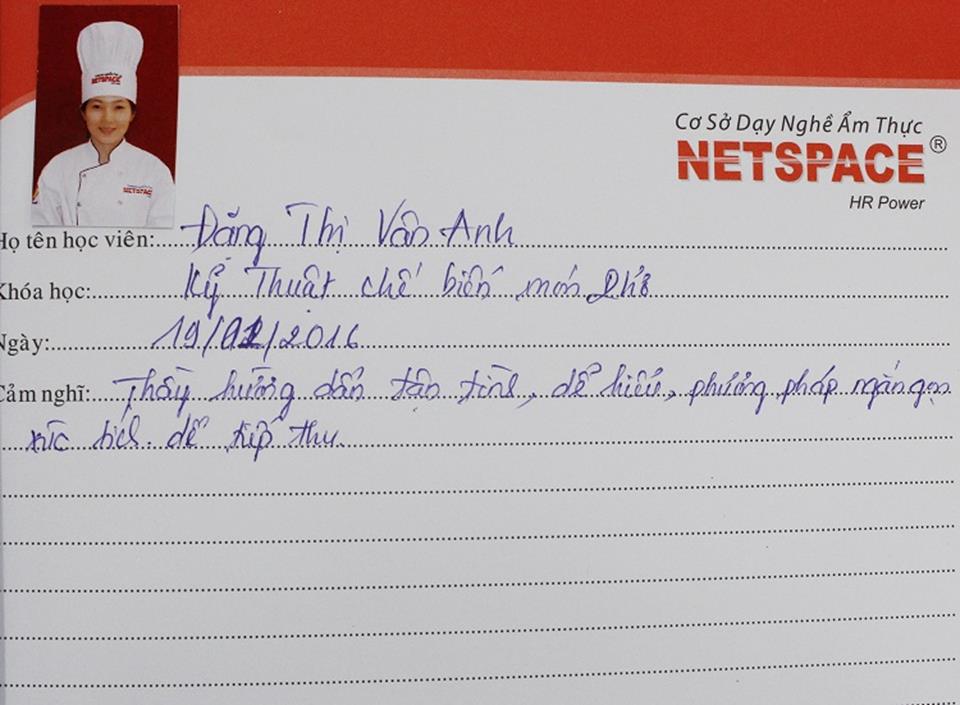 Cơ Sở Dạy Nghề Ẩm Thực
NETSPACE ®
HR Power
NETSPACE
NETSPACE
Họ tên học viên: Đặng Thị Vân Anh
Khóa học: Kỷ Thuật chế biến món Phở
Ngày: 19/01/2016
Cảm nghĩ: Thầy hướng dẩn tận tình, dể hiểu, phương pháp ngắn gọn
xúc tích. dể tiếp thu.